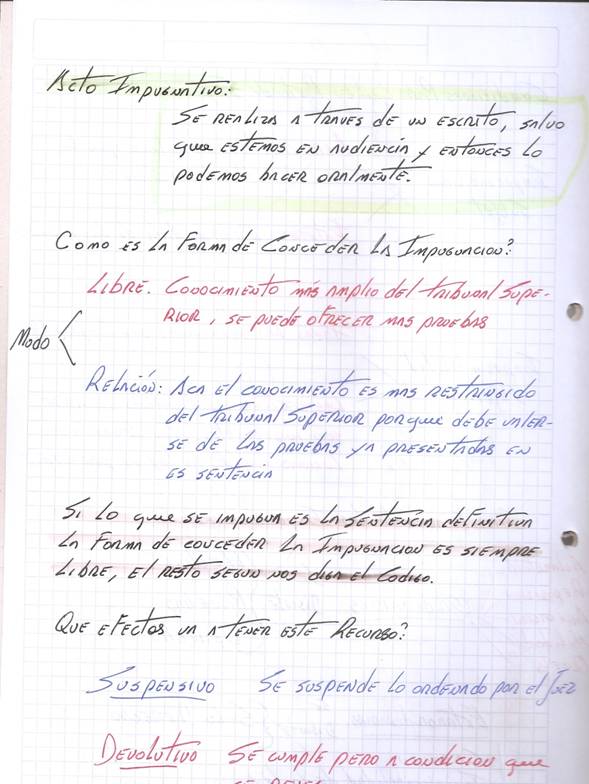 Acto Impugnativo:
Se realiza a traves de un escrito, salvo
que estemos en audiencia y entonces lo
podemos hacer oralmente.
Como es la Forma de Conceder la Impugnacion?
Libre. Conocimiento más amplio del tribunal Supe-
rior, se puede ofrecer mas pruebas
Modo
Relación: Aca el conocimiento es mas restringido
del tribunal Superior porque debe valer-
se de las pruebas ya presentadas en
es sentencia
Si lo que se impugna es la Sentencia definitiva
la Forma de conceder la Impugnacion es siempre
Libre, el resto segun nos diga el Codigo.
Que eFectos va a tener este Recurso?
Suspensivo Se suspende lo ordenado por el Juez
Devolutivo Se cumple pero a condicion que